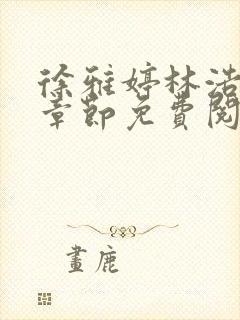 徐雅婷林浩
章節免費閱
畫鹿